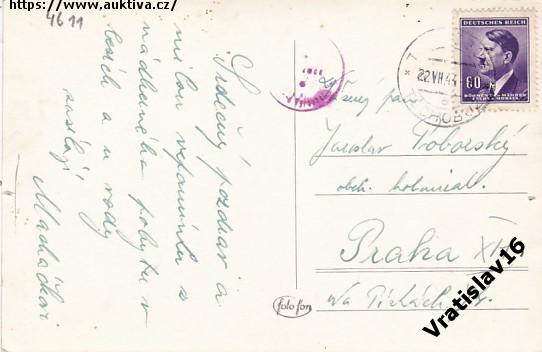 https://www.auktiva.cz/
4611
Srdečný pozdrav a
milou vzpomínku z
nádherného pobytu v
lesích a u vody
zasílají
Macháčkovi
DEUTSCHES REICH
60
BÖHMEN U. MÄHREN
ČECHY A MORAVA
22.VII.43
Vážený pan
Jaroslav Poborský
obch. kolonial.
Praha XII
Na
foto fon
Vratislav16